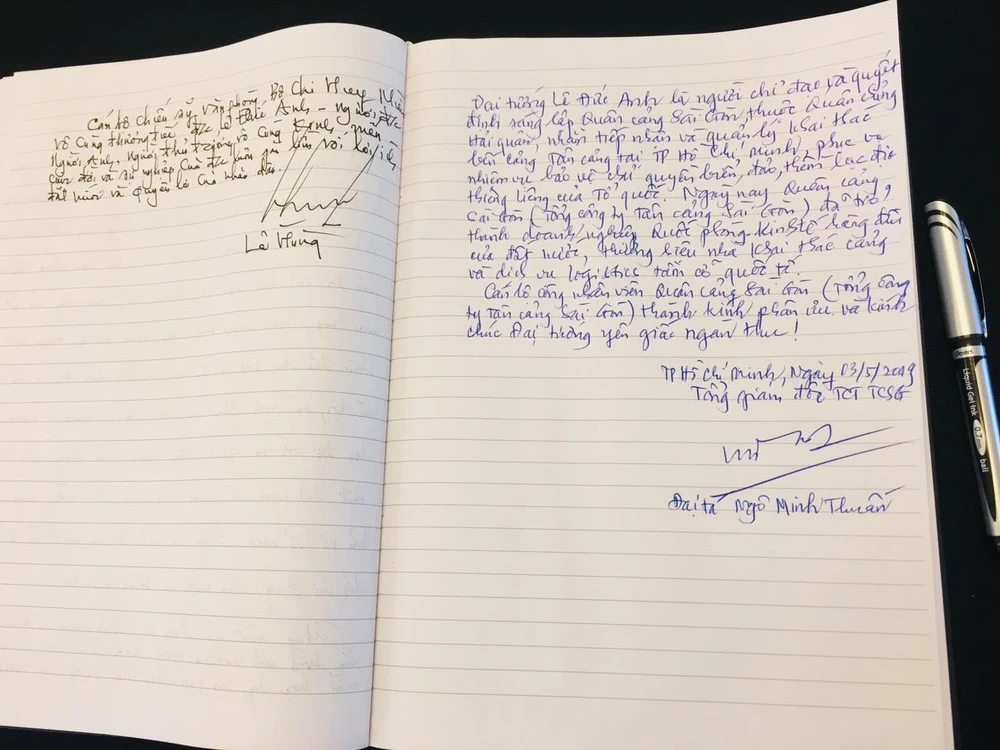 Cán bộ chiến sỹ Văn phòng Bộ Chỉ Huy
Vô cùng thương tiếc Đ/c Lê Đức Anh - Người
Người Anh, Người thủ trưởng vô cùng kính mến
Cuộc đời và sự nghiệp của Đ/c luôn gắn liền với lợi ích
đất nước và quyền lợi của nhân dân.
Lê Hùng
Đại tướng Lê Đức Anh là người chỉ đạo và quyết
định sáng lập Quân cảng Sài Gòn, thuộc Quân chủng
Hải quân, nhằm tiếp nhận và quản lý khai thác
bến cảng Tân cảng tại TP Hồ Chí Minh, phục vụ
nhiệm vụ bảo vệ chủ quyền biển, đảo, thềm lục địa
thiêng liêng của Tổ quốc. Ngày nay Quân cảng
Sài Gòn (Tổng công ty Tân cảng Sài Gòn) đã trở
thành doanh nghiệp Quốc phòng - Kinh tế hàng đầu
của đất nước, thương hiệu nhà khai thác cảng
và dịch vụ logistics tầm cỡ quốc tế.
Cán bộ công nhân viên Quân cảng Sài Gòn (Tổng công
ty Tân cảng Sài Gòn) thành kính phân ưu và kính
chúc Đại tướng yên giấc ngàn thu!
TP Hồ Chí Minh, Ngày 03/5/2019
Tổng giám đốc TCT TCSG
Đại tá Ngô Minh Thuấn
Pentel
Liquid Gel Ink
0.7
ball